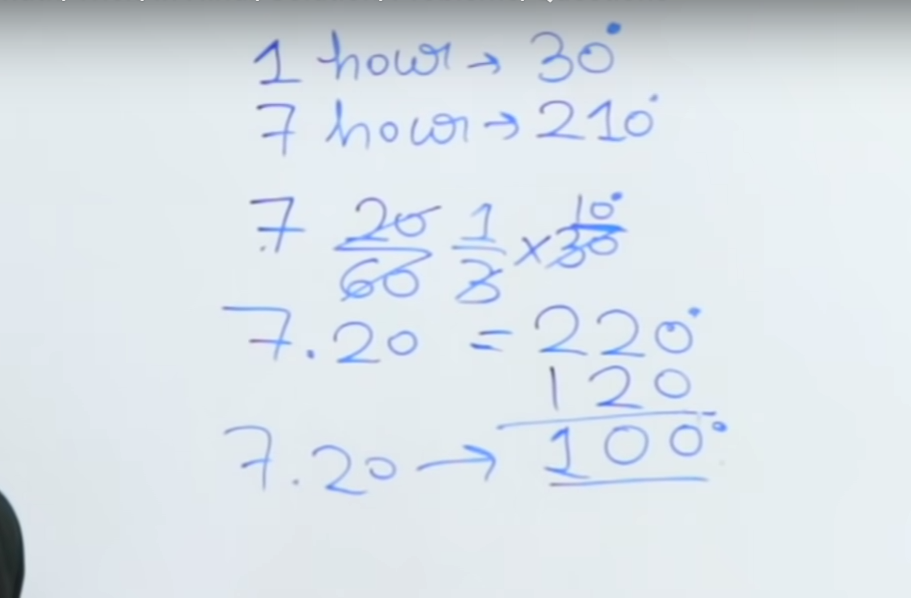 1 hour → 30°
7 hour → 210°
7 20/60 1/3 × 30 10°
7.20 = 220°
120
7.20 → 100°